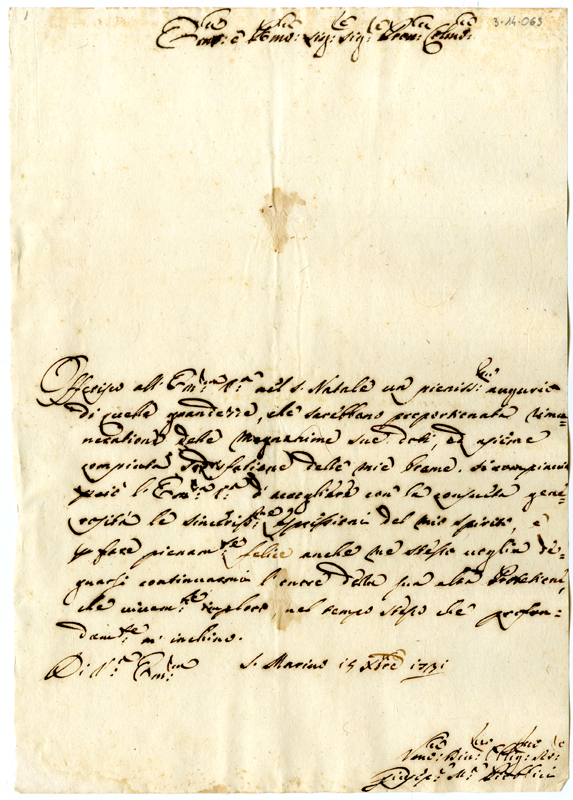 3-14-063
Em:mo e R:mo Sig: Sig:
Offerisco all' Em:za V:ra nel S. Natale un pieniss:mo augurio
di quelle grandezze, che sarebbano proportionata rimu-
neratione delle magnanime sue doti, ed assieme
compiuta sodisfatione delle mie brame. Si compiaccia
poiè l' Em:za V:ra d' accogliere con la consueta gene-
rosità le sinceriss:me espressioni del mio spirito, e
p fare pienam:te felice anche me stesso voglia de-
gnarsi continuarmi l'onore della sua alta Protetione,
che vivam:te imploro, nel tempo stesso che profon-
dam:te m' inchino.
Di V:ra Em:za S. Marino 15 Xbre 1731
Um:o Div:mo Oblig:mo
Giusep:e M:a